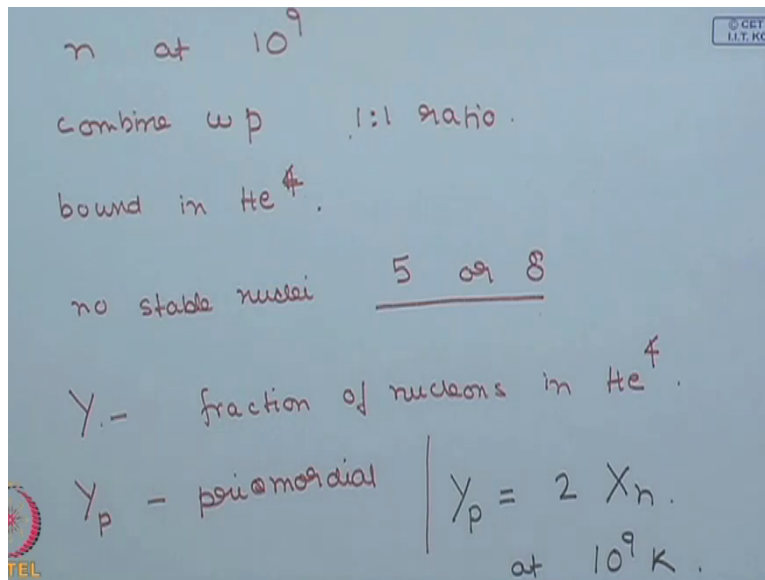 n at 10⁹
© CET
I.I.T. KG
combine w p 1:1 ratio.
bound in He⁴.
no stable nuclei 5 or 8
Y - fraction of nucleons in He⁴.
Yₚ - primordial | Yₚ = 2 Xₙ.
at 10⁹ K.
TEL